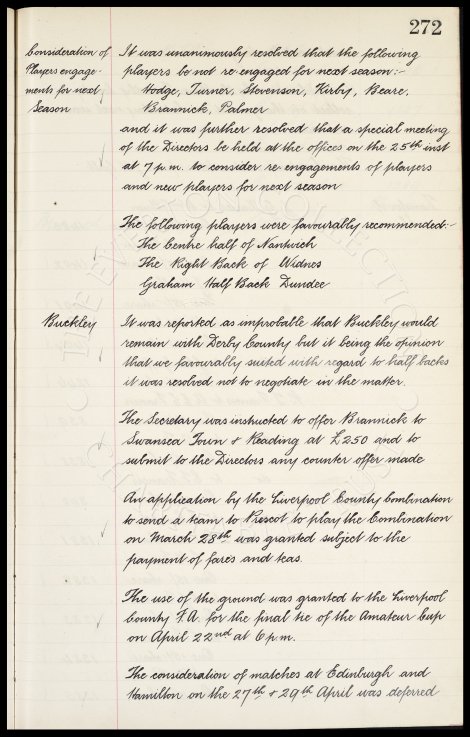 272
Consideration of
Players engage-
ments for next
Season
It was unanimously resolved that the following
players be not re-engaged for next season:-
Hodge, Turner, Stevenson, Kirby, Beare,
Brannick, Palmer
and it was further resolved that a special meeting
of the Directors be held at the offices on the 25th inst
at 7 p.m. to consider re-engagements of players
and new players for next season
The following players were favourably recommended:-
The Centre half of Nantwich
The Right Back of Widnes
Graham Half Back Dundee
Buckley
It was reported as improbable that Buckley would
remain with Derby County but it being the opinion
that we favourably suited with regard to half backs
it was resolved not to negotiate in the matter.
The Secretary was instructed to offer Brannick to
Swansea Town & Reading at £250 and to
submit to the Directors any counter offer made
An application by the Liverpool County Combination
to send a team to Prescot to play the Combination
on March 28th was granted subject to the
payment of fares and teas.
The use of the ground was granted to the Liverpool
County F.A. for the final tie of the Amateur Cup
on April 22nd at 6 p.m.
The consideration of matches at Edinburgh and
Hamilton on the 27th & 29th April was deferred